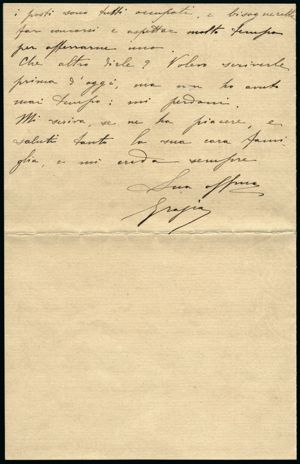 i posti sono tutti occupati, e bisognerebbe
far concorsi e aspettar molto tempo
per afferrarne uno.
Che altro dirle? Volevo scriverle
prima d'oggi, ma non ho avuto
mai tempo: mi perdoni.
Mi scriva, se ne ha piacere, e
saluti tanto la sua cara fami
glia, e mi creda sempre
Sua affma
Grazia